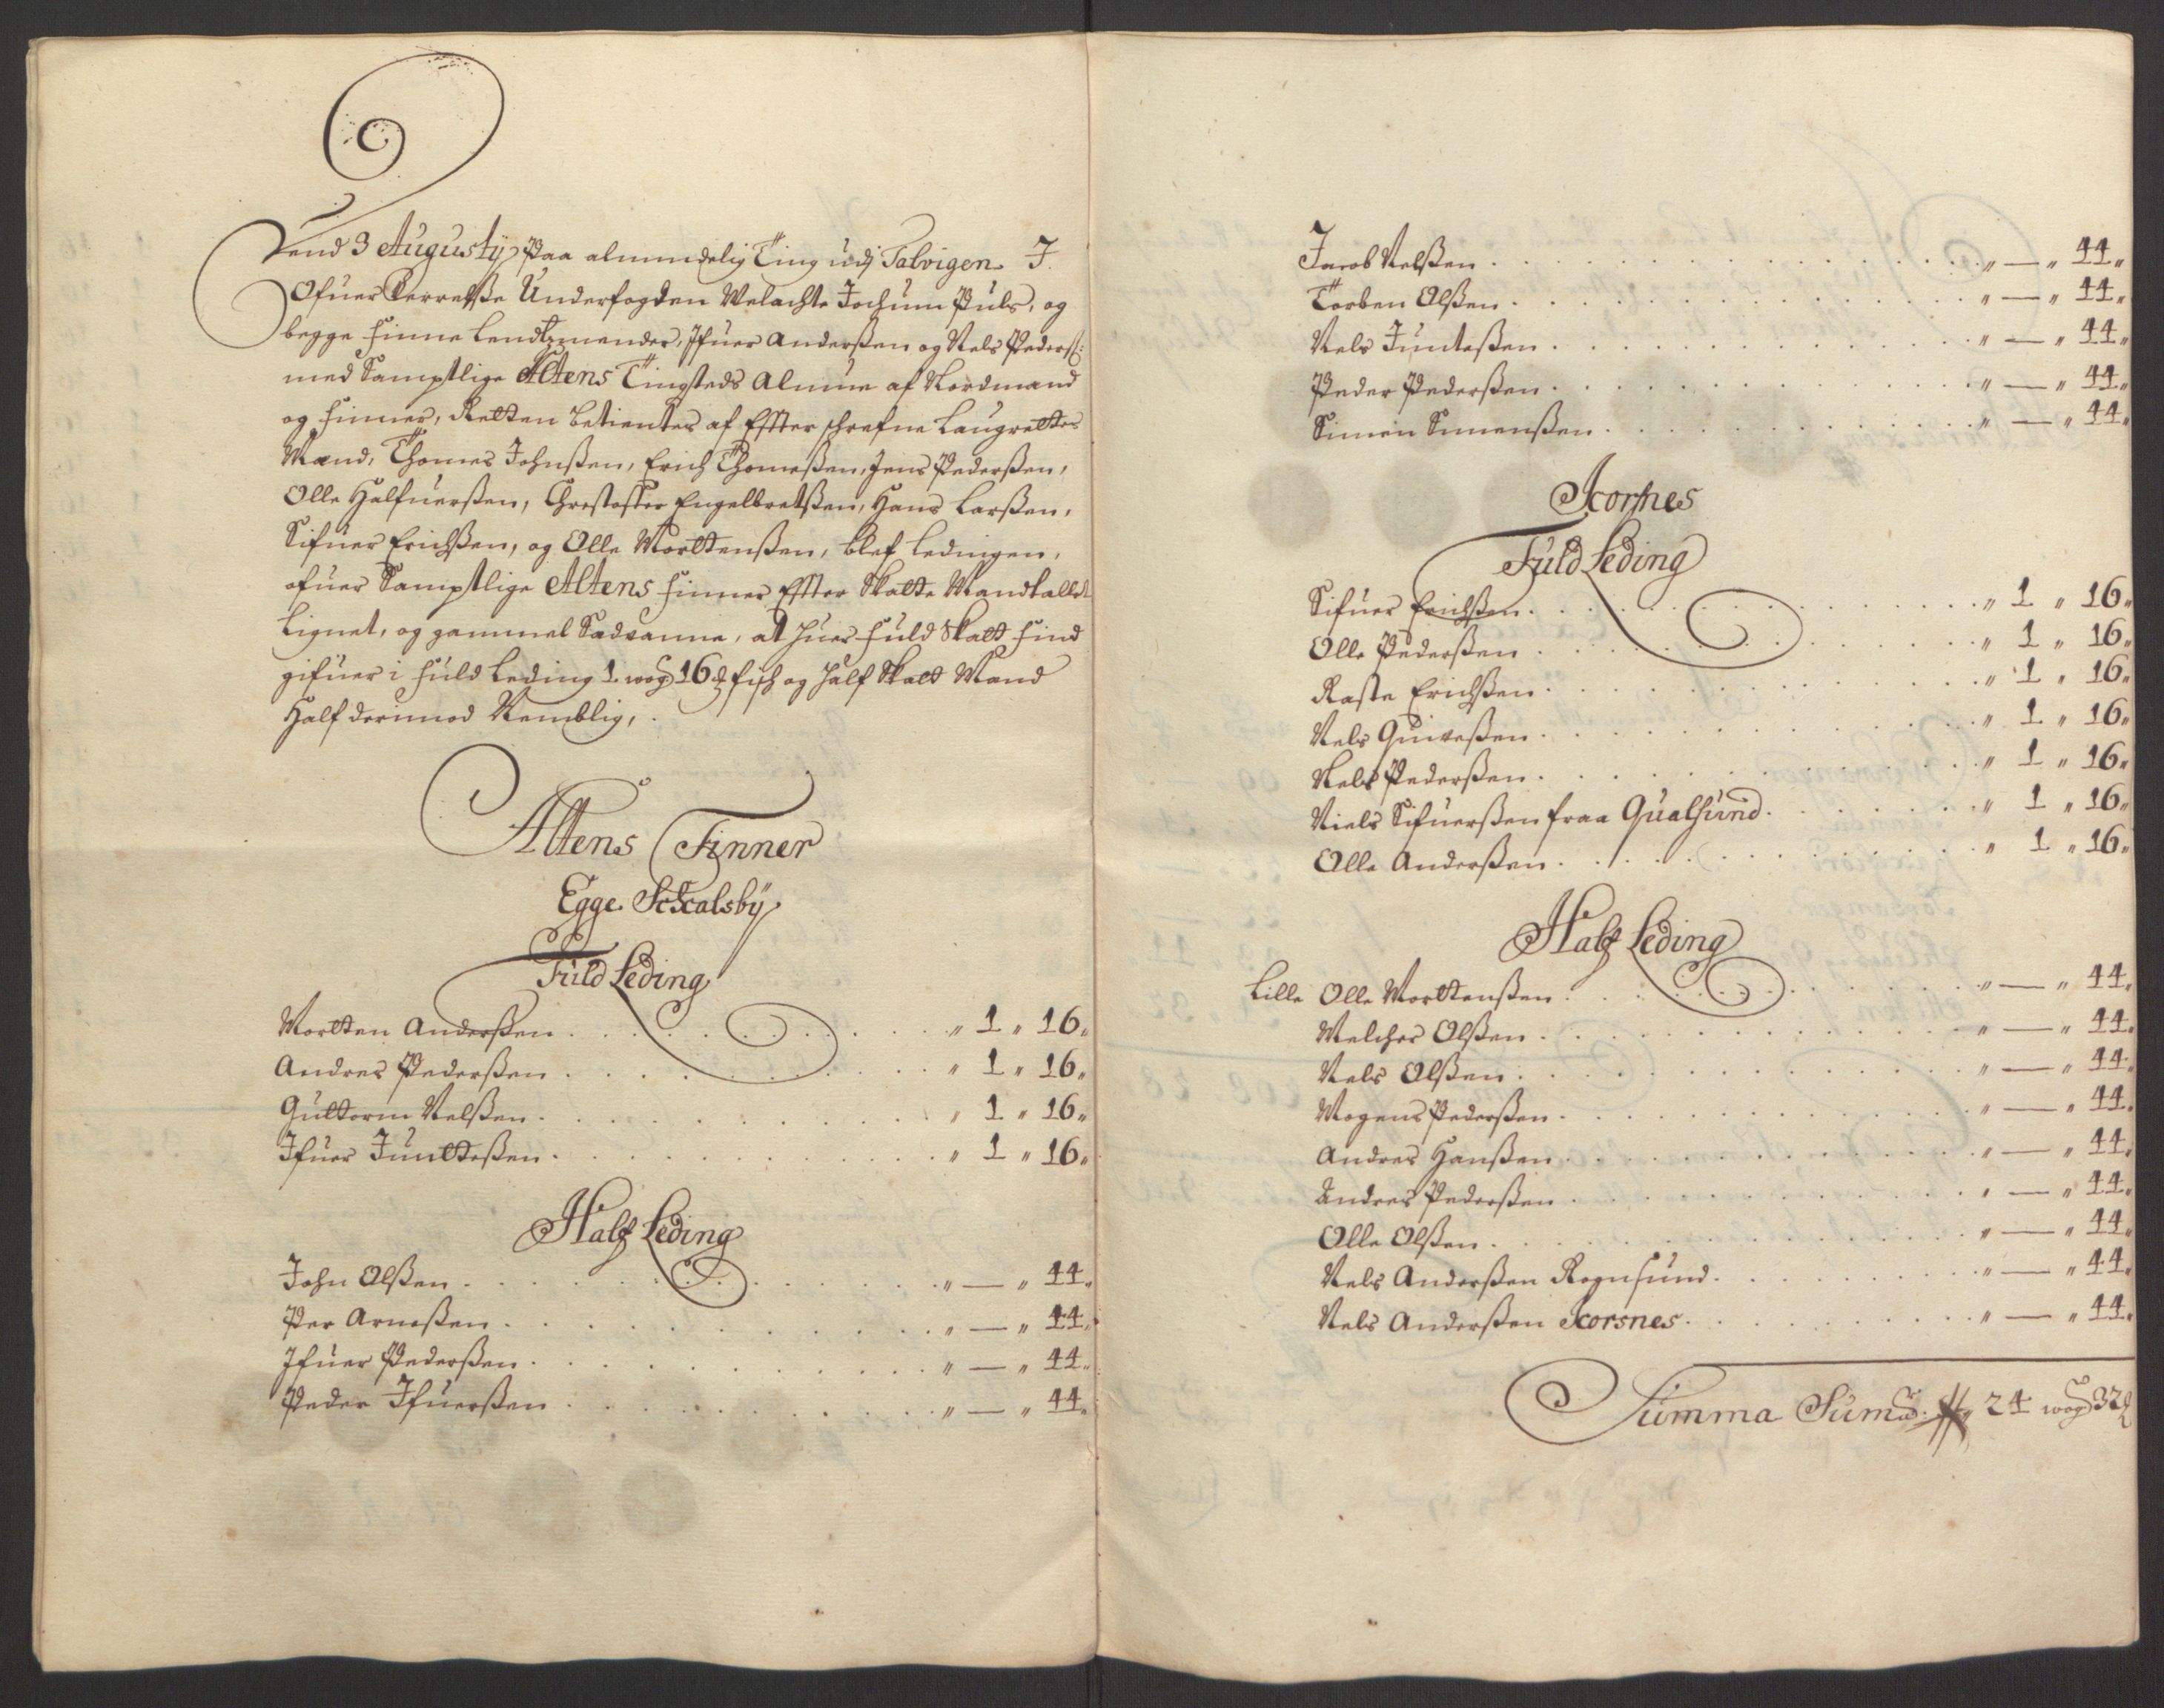 Dend 3 Augustij Paa almindelig Ting udj Talvigen. J
Ofuer Verrelße Underfogden Welachte Jochum Puls, og
begge finne Lendtzmender, Jfuer Anderßen og Nels Pederß:
med Samptlige Altens Tingsteds Almue af Nordmand
og finner, Retten betientes af Effterschrefne Laugrettes
Mænd, Thomes Johnßen, Erich Thomeßen, Jens Pederßen,
Olle Halfuerßen, Chrestoffer Engelbretßen, Hans Larßen,
Sifuer Erichßen, og Olle Morttenßen, blef Ledingen,
ofuer Samptlige Altens finner Effter Skatte Mandtallet
Lignet, og gammel Sædvanne, at huer fuld Skatt find
gifuer i fuld Leding 1. wog 16 ℔ fisch og half Skatt Mand
Half derimod Nemblig,
Altens Finner
Egge Schalsbÿ
Fuld Leding
Mortten Anderßen . . . „ 1 „ 16„
Andres Pederßen . . . „ 1 „ 16„
Guttorm Nelßen . . . „ 1 „ 16„
Jfuer Juntteßen . . . „ 1 „ 16„
Half Leding
John Olßen . . . „ — „ 44„
Per Arneßen . . . „ — „ 44„
Jfuer Pederßen . . . „ — „ 44„
Peder Jfuerßen . . . „ — „ 44„
Jacob Nelßen . . . „ — „ 44„
Torben Olßen . . . „ — „ 44„
Nels Junteßen . . . „ — „ 44„
Peder Pederßen . . . „ — „ 44„
Simen Simenßen . . . „ — „ 44„
Korsnes
Fuld Leding
Sifuer Erichßen . . . „ 1 „ 16„
Olle Pederßen . . . „ 1 „ 16„
Raste Erichßen . . . „ 1 „ 16„
Nels Quiveßen . . . „ 1 „ 16„
Nels Pederßen . . . „ 1 „ 16„
Niels Sifuerßen fraa Qualsund . . . „ 1 „ 16„
Olle Anderßen . . . „ 1 „ 16„
Half Leding
Lille Olle Morttenßen . . . „ — „ 44„
Melcher Olßen . . . „ — „ 44„
Nels Olßen . . . „ — „ 44„
Mogens Pederßen . . . „ — „ 44„
Andres Hanßen . . . „ — „ 44„
Andres Pederßen . . . „ — „ 44„
Olle Olßen . . . „ — „ 44„
Nels Anderßen Rognsund . . . „ — „ 44„
Nels Anderßen Korsnes . . . „ — „ 44„
Summa Sumar. 24 wog 32 ℔